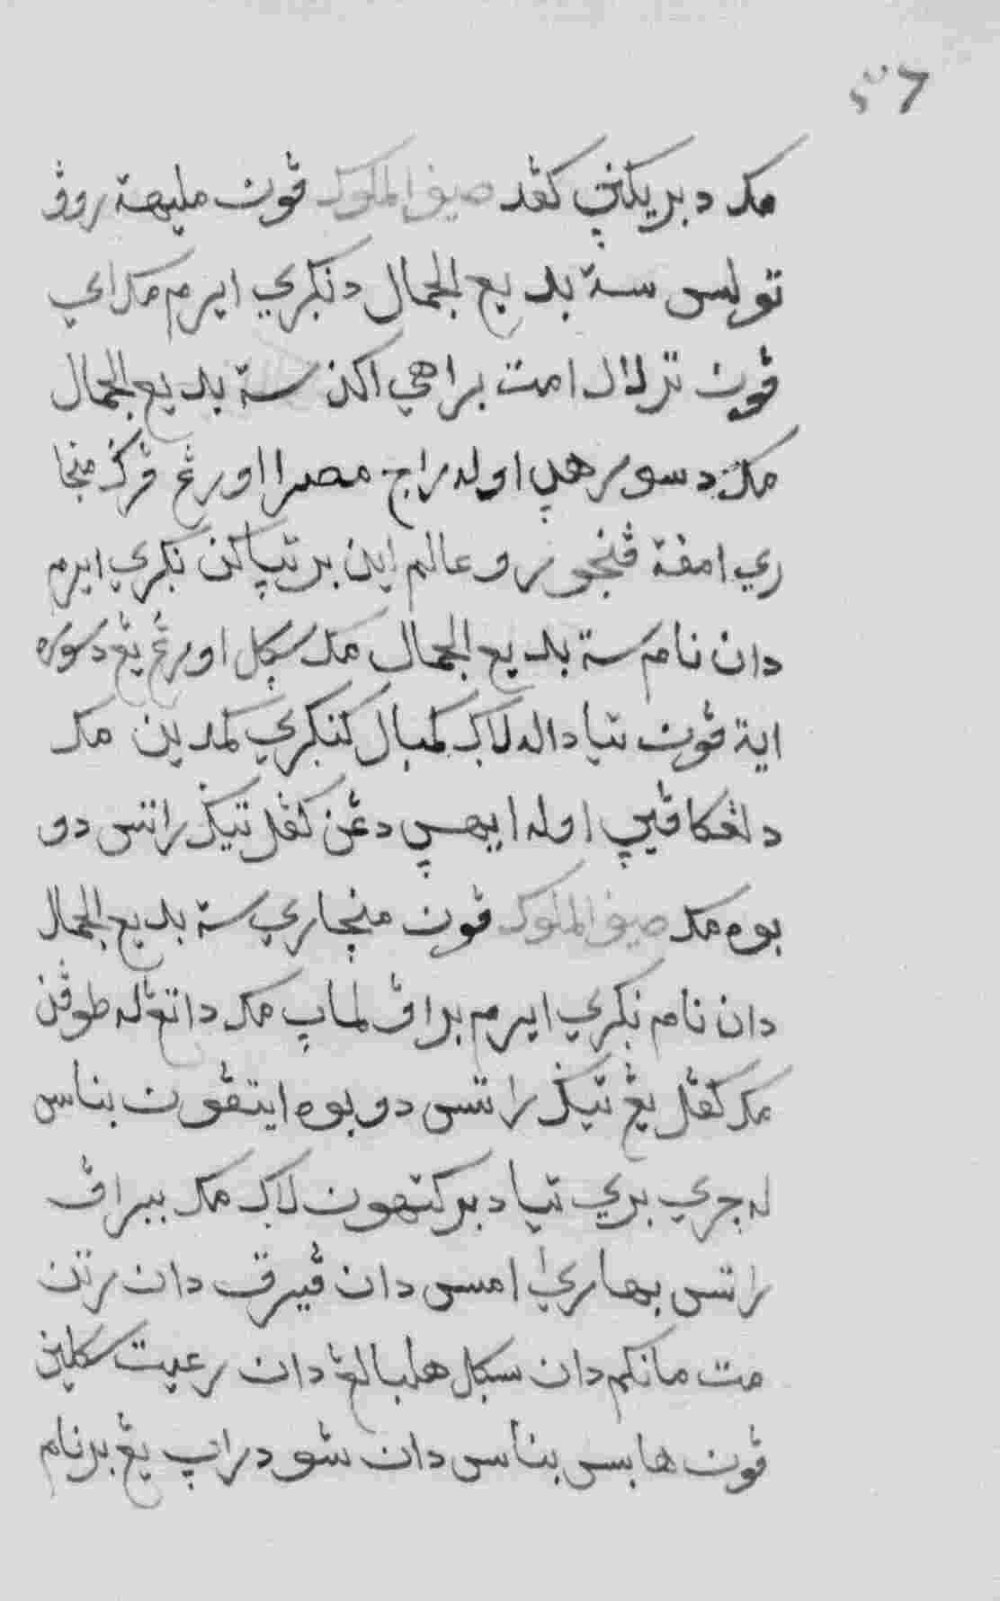 ٥٦
مک دبريکنڽ کڤد صيف الملوک ڤون مليهة روڤ
توليس ستة بديع الجمال دنکري ايرم مک اي
ڤون ترلالا امت براهي اکن ستة بديع الجمال
مک دسورهڽ اوله راج مصر اورڠ ڤرڬي منچا
ري امڤة ڤنجورو عالم اين برتڽاکن نکري ايرم
دان نام ستة بديع الجمال مک سݢل اورڠ يڠ دسوره
ايت ڤون تيادا له لاݢ کمبال کنکري کمدين مک
دلڠکاڤيڽ اوله ايهڽ دڠن کڤل تيݢ راتس دو
بوه مک صيف الملوک ڤون منچاري ستة بديع الجمال
دان نام نکري ايرم براڤ لماڽ مک داتڠله طوفن
مک کڤل يڠ تيݢ راتس دوبوه ايتڤون بناس
له چري بري تياد برکتهون لاݢ مک ببراڤ
راتس بهاري امس دان ڤيرق دان رتن
مت مانکم دان سݢل هلبالڠ دان رعيت سکلين
ڤون هابس بناس دان سودراڽ يڠ برنام